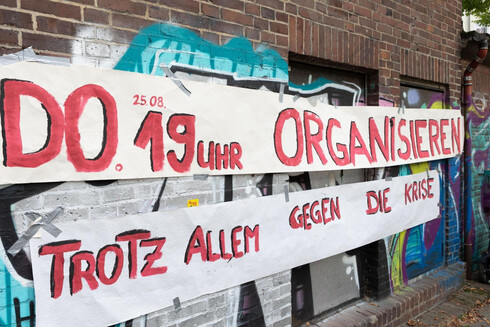 DO. 25.08. 19 UHR ORGANISIEREN
TROTZ ALLEM GEGEN DIE KRISE